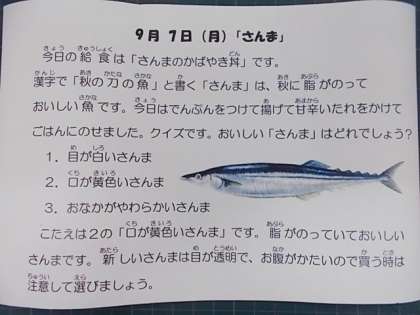 ９月７日（月）「さんま」
今日の給食は「さんまのかばやき丼」です。
漢字で「秋の刀の魚」と書く「さんま」は、秋に脂がのって
おいしい魚です。今日はでんぷんをつけて揚げて甘辛いたれをかけて
ごはんにのせました。クイズです。おいしい「さんま」はどれでしょう？
１．目が白いさんま
２．口が黄色いさんま
３．おなかがやわらかいさんま
こたえは２の「口が黄色いさんま」です。脂がのっていておいしい
さんまです。新しいさんまは目が透明で、お腹がかたいので買う時は
注意して選びましょう。